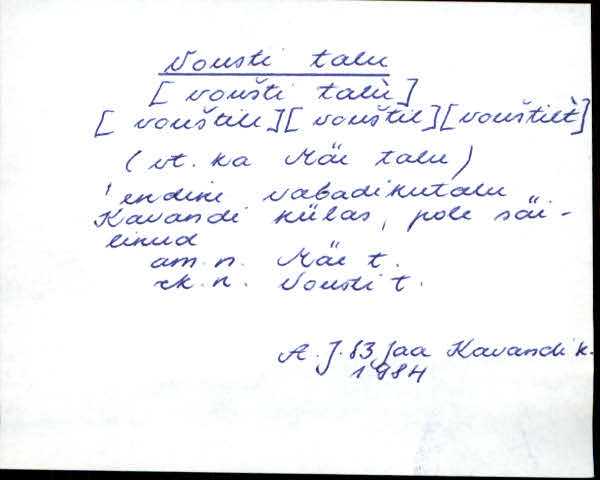 Vousti talu
[voušti talù]
[vouštile][vouštil][vouštilt̀]
(vt. ka Mäe talu)
'endine vabadikutalu
Kavandi külas, pole säi-
linud
am. n. Mäe t.
rk. n. Vousti t.
A. J. 83 Jaa Kavandi k.
1984